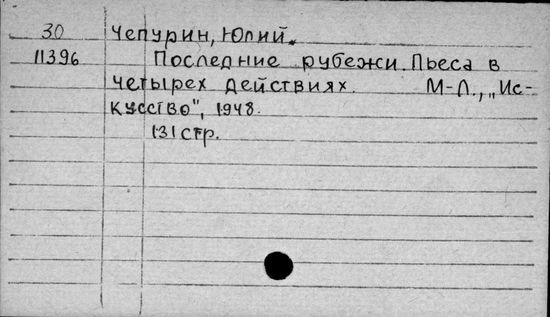 30 Чепурин, Юлий.
11396 Последние рубежи. Пьеса в
четырех действиях. М-Л., „Ис-
кусство", 1948.
131 стр.